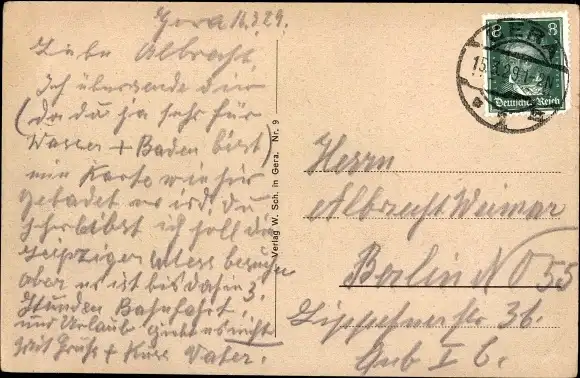 Gera 14.3.29.
Liebe Albrecht.
Ich übersende dir
(da du ja sehr für
Wasser + Baden bist)
eine Karte wie für
gebadet es ist, du
schreibst ich soll die
Leipziger Messe besuchen
aber es ist bis dahin 3.
Stunden Bahnfahrt,
und Urlaub giebt es nicht
mit Gruß + Kuss Vater.
Verlag W. Sch. in Gera. Nr. 9
GERA
15.3.29.
8 8
Deutsches Reich
Herrn
Albrecht Weimar
Berlin NO 55
36.
I